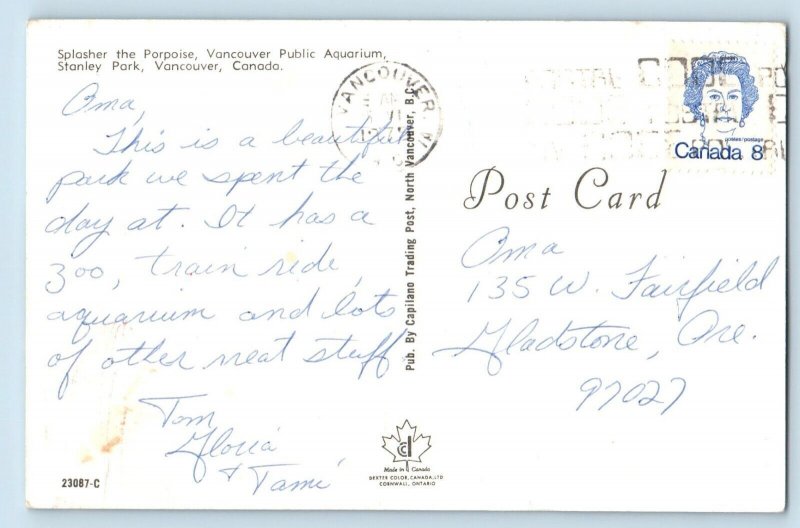 Splasher the Porpoise, Vancouver Public Aquarium,
Stanley Park, Vancouver, Canada.
Oma,
This is a beautiful
park we spent the
day at. It has a
zoo, train ride,
aquarium and lots
of other neat stuff
Tom
Gloria
+ Tami
23087-C
Pub. By Capilano Trading Post, North Vancouver, B.C.
VANCOUVER,
POSTAL CODE
postes/postage
Canada 8
Post Card
Oma
135 W. Fairfield
Gladstone, Ore.
97027
Made in Canada
DEXTER COLOR, CANADA, LTD
CORNWALL, ONTARIO